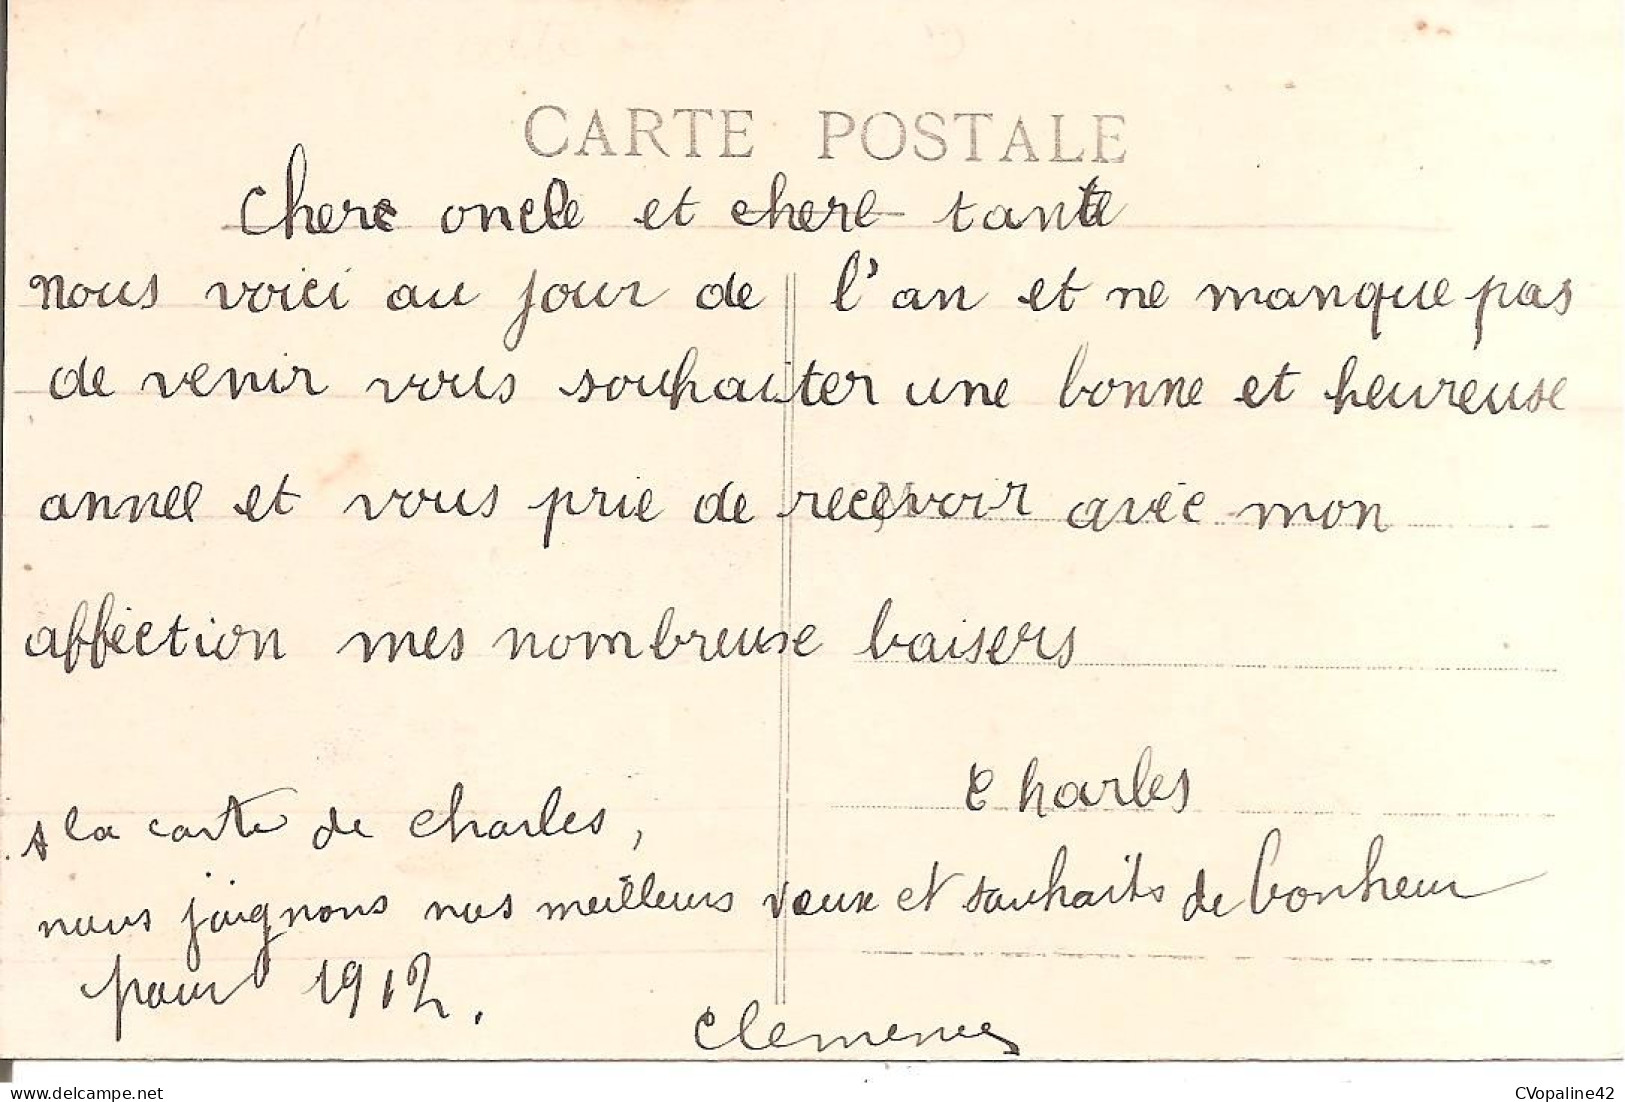 CARTE POSTALE
Chere oncle et chere tante
nous voici au jour de l'an et ne manque pas
de venir vous souhaiter une bonne et heureuse
anneé et vous prie de recevoir avéc mon
afféction mes nombreuse baisers
Charles
A la carte de Charles,
nous joignons nos meilleurs vœux et souhaits de bonheur
pour 1912.
Clemence
CVopaline42